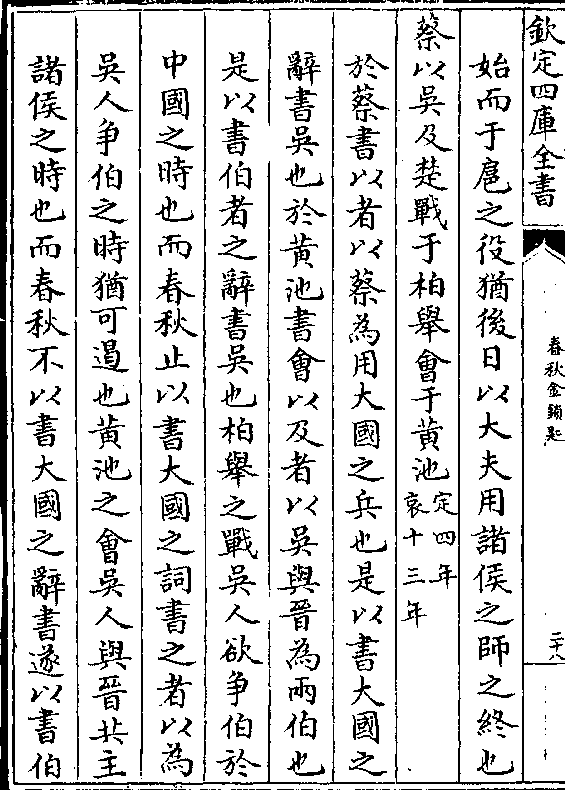 欽定四庫全書
春秋金鎖匙
二十八
始而于扈之役猶後日以大夫用諸侯之師之終也
蔡以吳及楚戰于柏舉會于黃池定四年
哀十三年
於蔡書以者以蔡為用大國之兵也是以書大國之
辭書吳也於黃池書會以及者以吳與晉為兩伯也
是以書伯者之辭書吳也柏舉之戰吳人欲爭伯於
中國之時也而春秋止以書大國之詞書之者以為
吳人爭伯之時猶可遏也黃池之會吳人與晉共主
諸侯之時也而春秋不以書大國之辭書遂以書伯